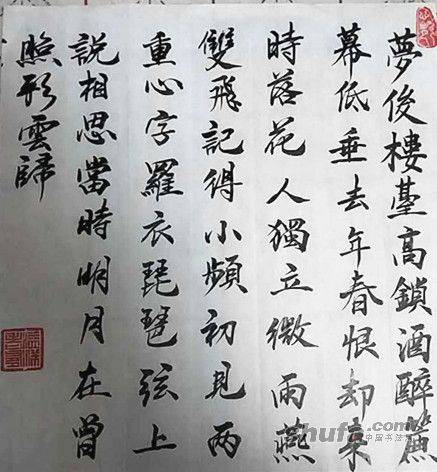 夢後樓臺高鎖酒醉簾
幕低垂去年春恨却來
時落花人獨立微雨燕
雙飛記得小頻初見兩
重心字羅衣琵琶弦上
說相思當時明月在曾
照彩雲歸